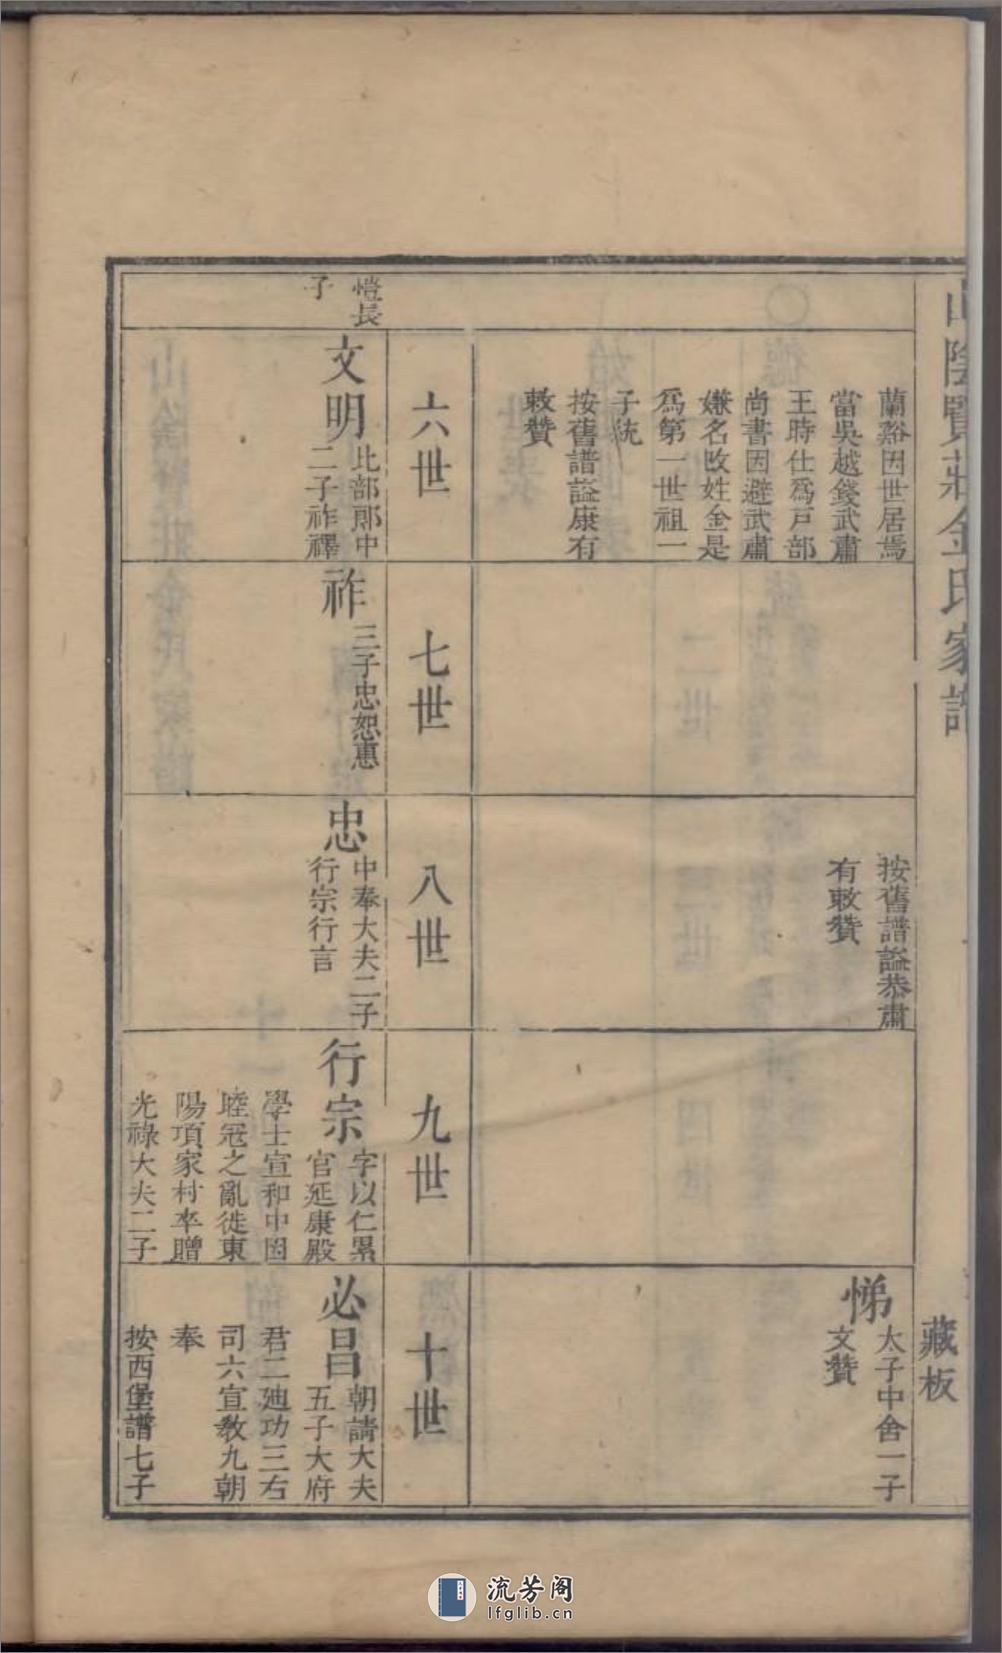 山陰賢莊金氏家譜
藏板
蘭谿因世居焉
當吳越錢武肅
王時仕爲戸部
尚書因避武肅
嫌名改姓金是
爲第一世祖一
子統
按舊譜諡康有
敕贊
按舊譜諡恭肅
有敕贊
悌
太子中舍一子
文贊
六世
七世
八世
九世
十世
愷長
子
文明
比部郎中
二子祚禪
祚
三子忠恕惠
忠
中奉大夫二子
行宗行言
行宗
字以仁累
官延康殿
學士宣和中因
睦冦之亂徙東
陽項家村卒贈
光祿大夫二子
必昌
朝請大夫
五子大府
君二廸功三右
司六宣教九朝
奉
按西堡譜七子
流芳阁
lfglib.cn